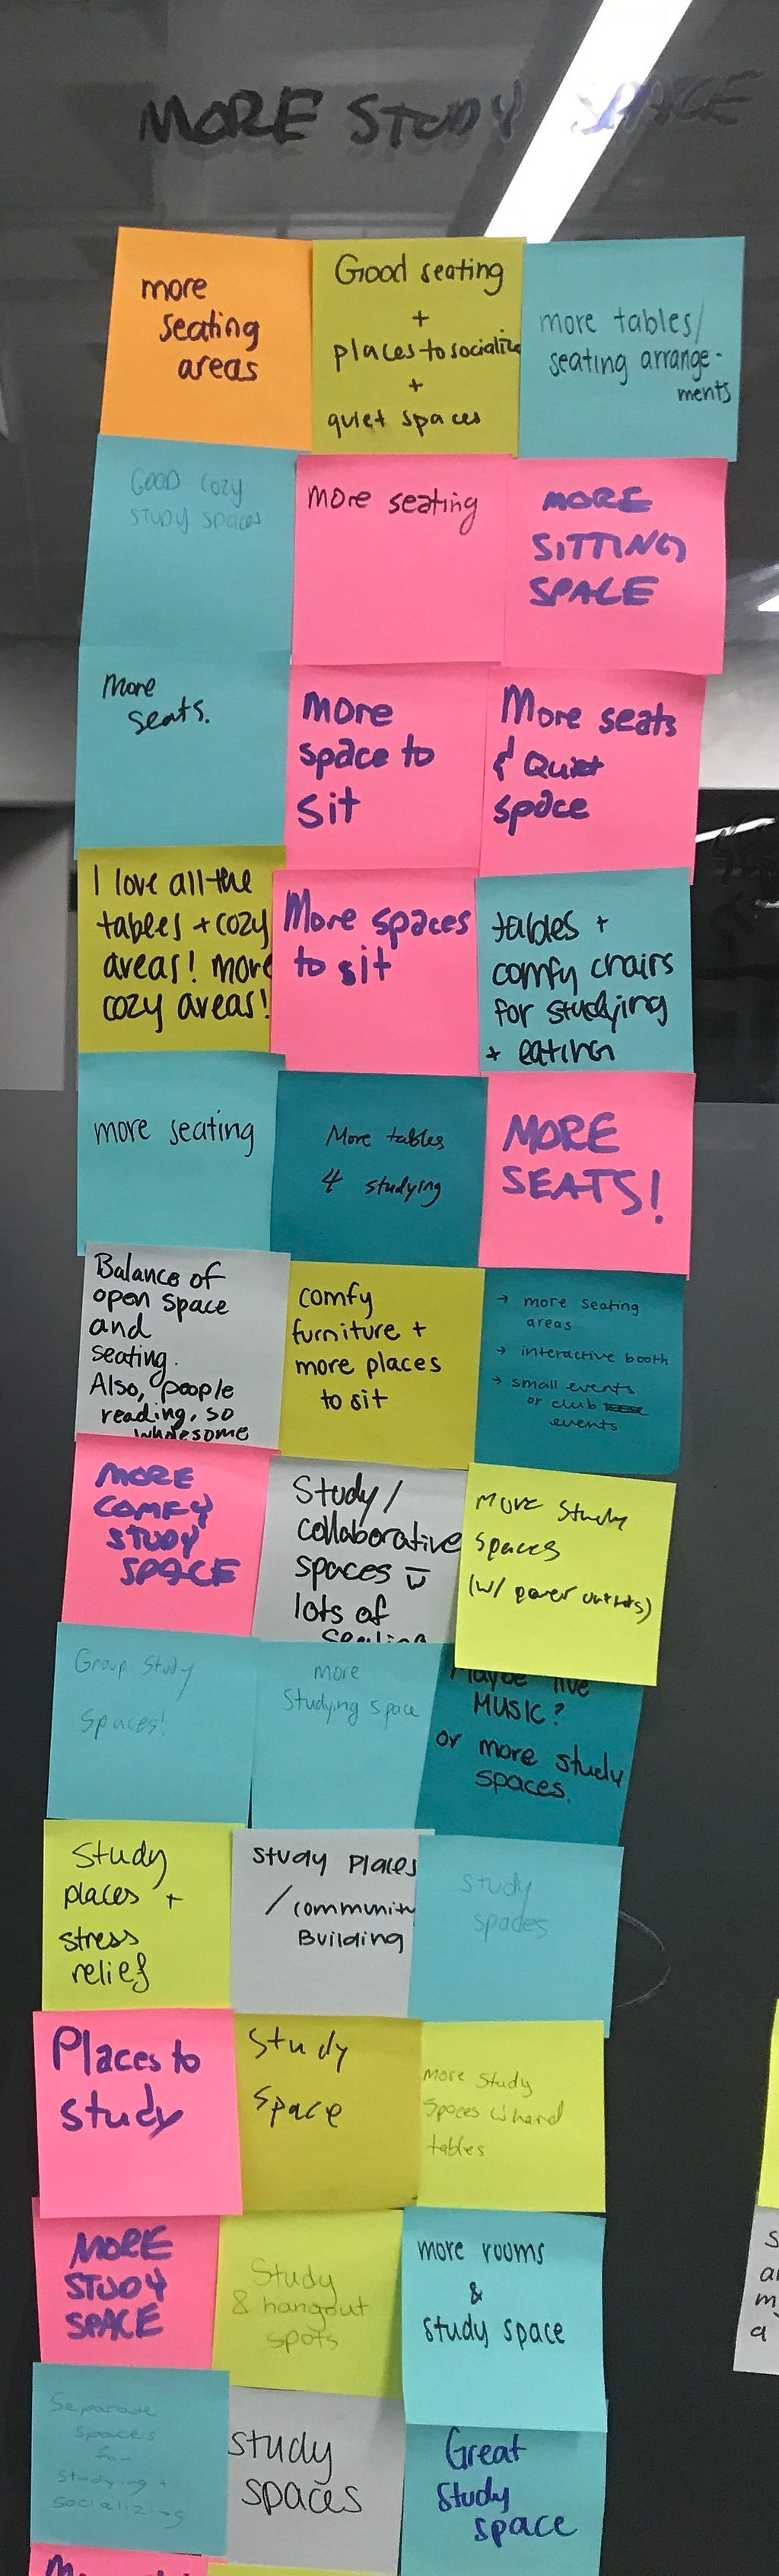 MORE STUDY SPACE
more
seating
areas
Good seating
+
places to socialize
+
quiet spaces
more tables/
seating arrange-
ments
GOOD COZY
STUDY SPACES
More seating
MORE
SITTING
SPACE
More
seats.
more
space to
sit
More seats
& Quiet
space
I love all the
tables + cozy
areas! more
cozy areas!
More spaces
to sit
tables +
comfy chairs
for studying
+ eating
more seating
More tables
4 studying
MORE
SEATS!
Balance of
open space
and
seating.
Also, people
reading, so
wholesome
comfy
furniture +
more places
to sit
→ more seating
areas
→ interactive booth
→ small events
or club
events
MORE
COMFY
STUDY
SPACE
Study/
collaborative
spaces w
lots of
seating
More Study
Spaces
(w/ power outlets)
Group Study
Spaces!
more
Studying space
Maybe live
MUSIC?
or more study
spaces.
Study
places +
stress
relief
Study Places
/community
Building
study
spaces
Places to
study
Study
Space
More Study
Spaces w hard
tables
MORE
STUDY
SPACE
Study
& hangout
spots
more rooms
&
study space
Separate
spaces
for
studying +
socializing
study
spaces
Great
Study
space